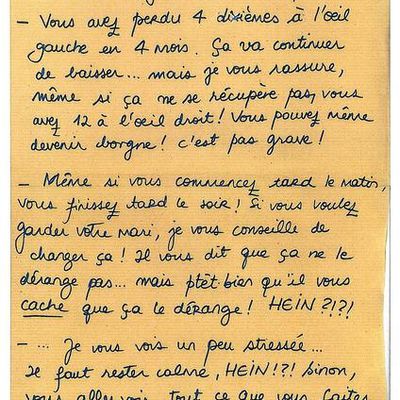 - Vous avez perdu 4 dixièmes à l'oeil
gauche en 4 mois. Ça va continuer
de baisser... mais je vous rassure,
même si ça ne se récupère pas, vous
avez 12 à l'oeil droit ! Vous pouvez même
devenir borgne ! c'est pas grave !
- Même si vous commencez tard le matin,
vous finissez tard le soir ! Si vous voulez
garder votre mari, je vous conseille de
changer ça ! Il vous dit que ça ne le
dérange pas... mais ptêt bien qu'il vous
cache que ça le dérange ! HEIN ?!?!
- ... Je vous vois un peu stressée...
Il faut rester calme, HEIN !?! Sinon,
vous allez voir tout ce que vous faites